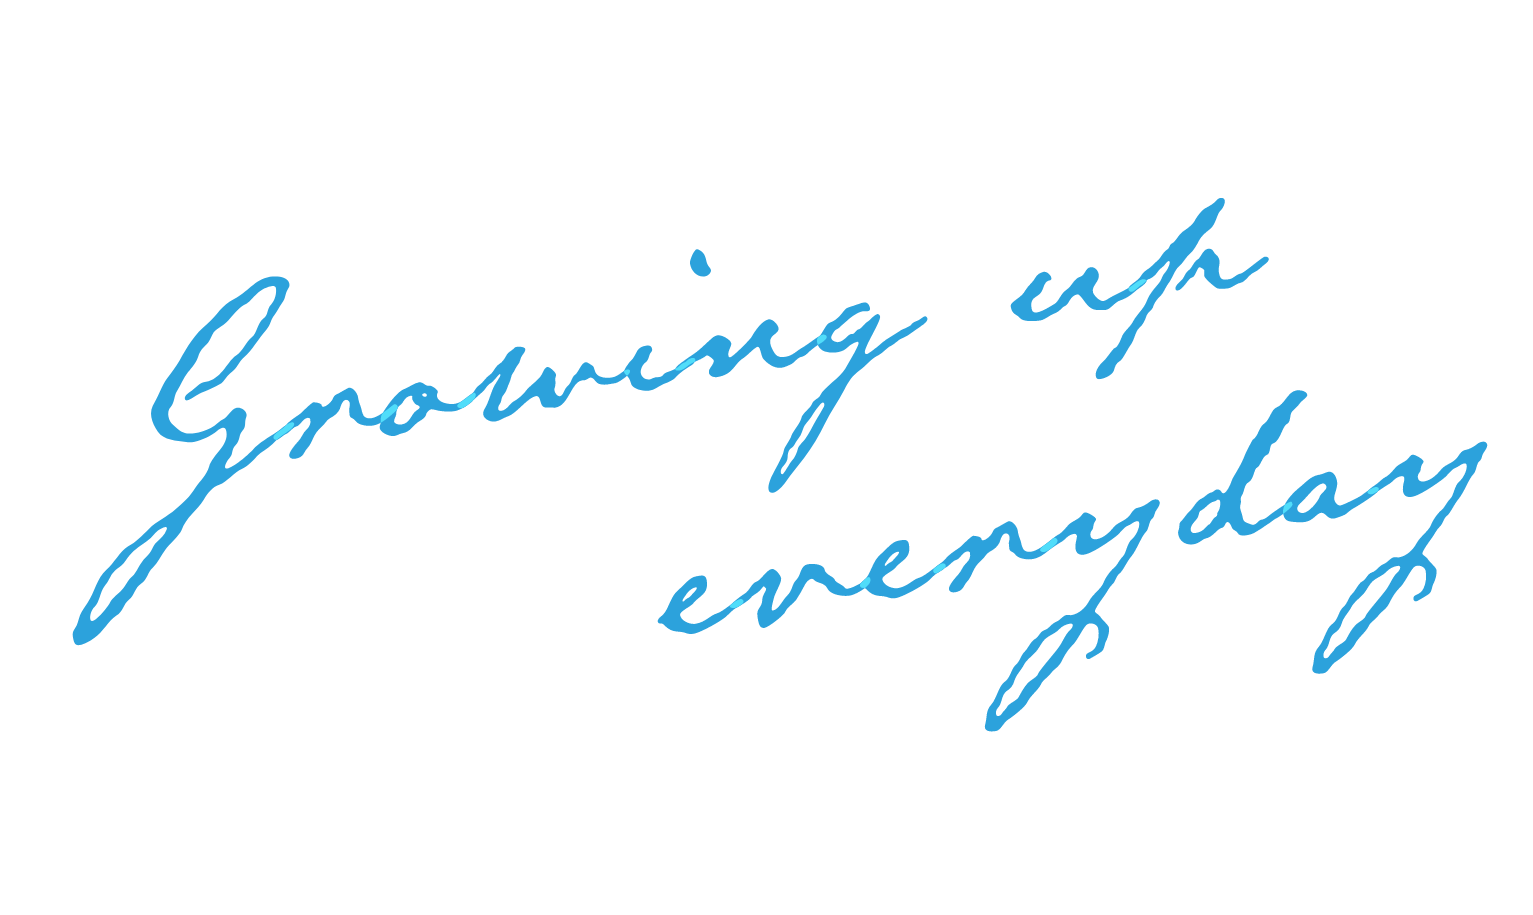 Growing up
everyday